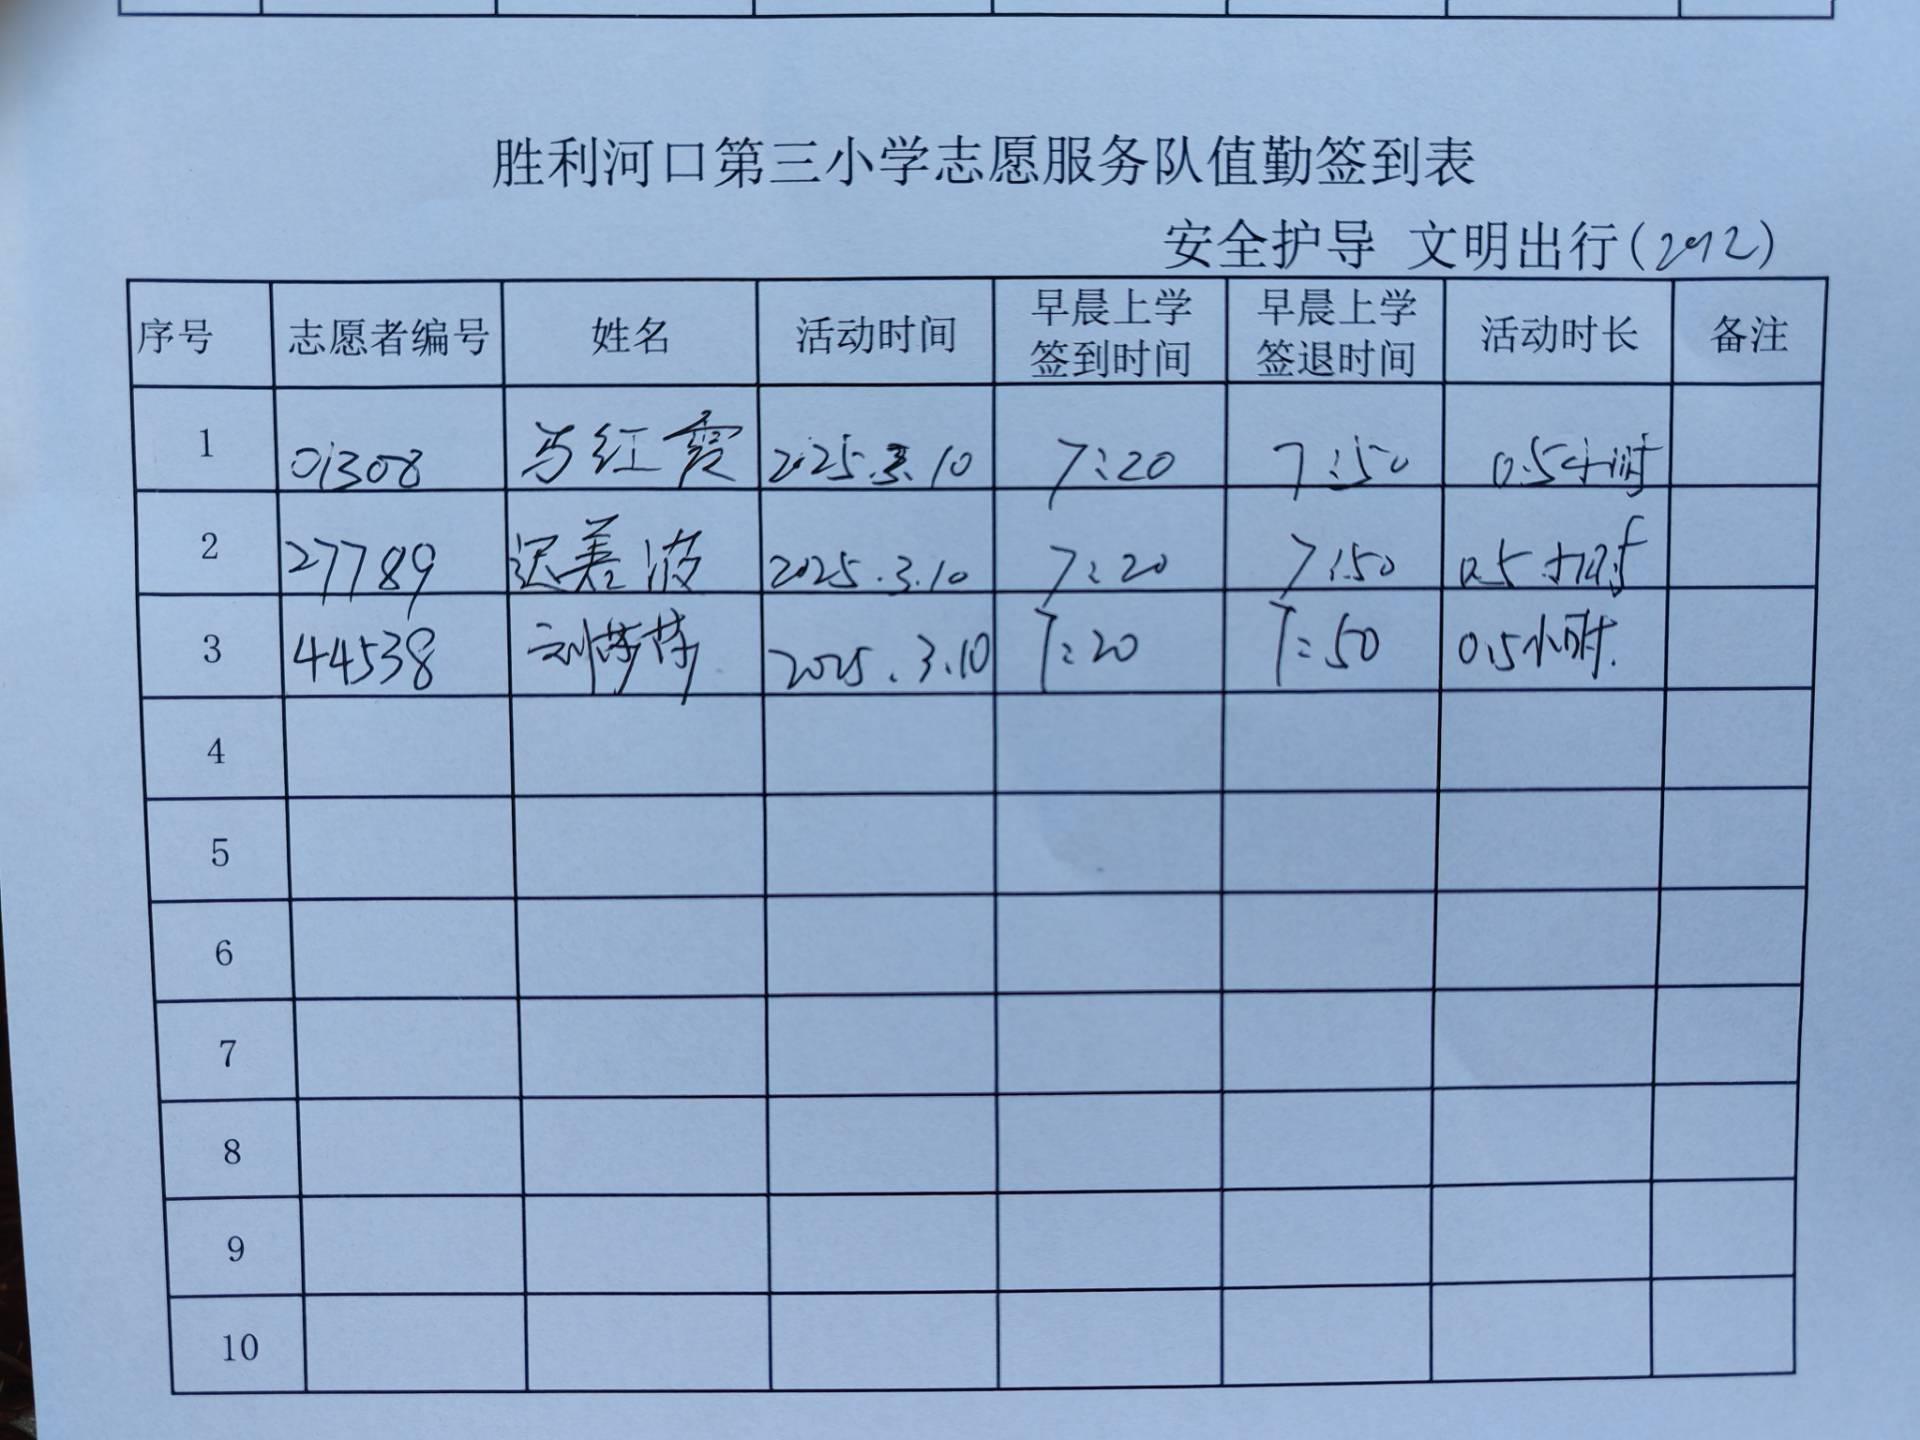 胜利河口第三小学志愿服务队值勤签到表
安全护导 文明出行(292)
序号 志愿者编号 姓名 活动时间 早晨上学签到时间 早晨上学签退时间 活动时长 备注
1 01308 马红霞 2025.3.10 7:20 7:50 0.5小时
2 27789 迟善波 2025.3.10 7:20 7:50 0.5小时
3 44538 刘莎莎 2025.3.10 7:20 7:50 0.5小时.
4
5
6
7
8
9
10